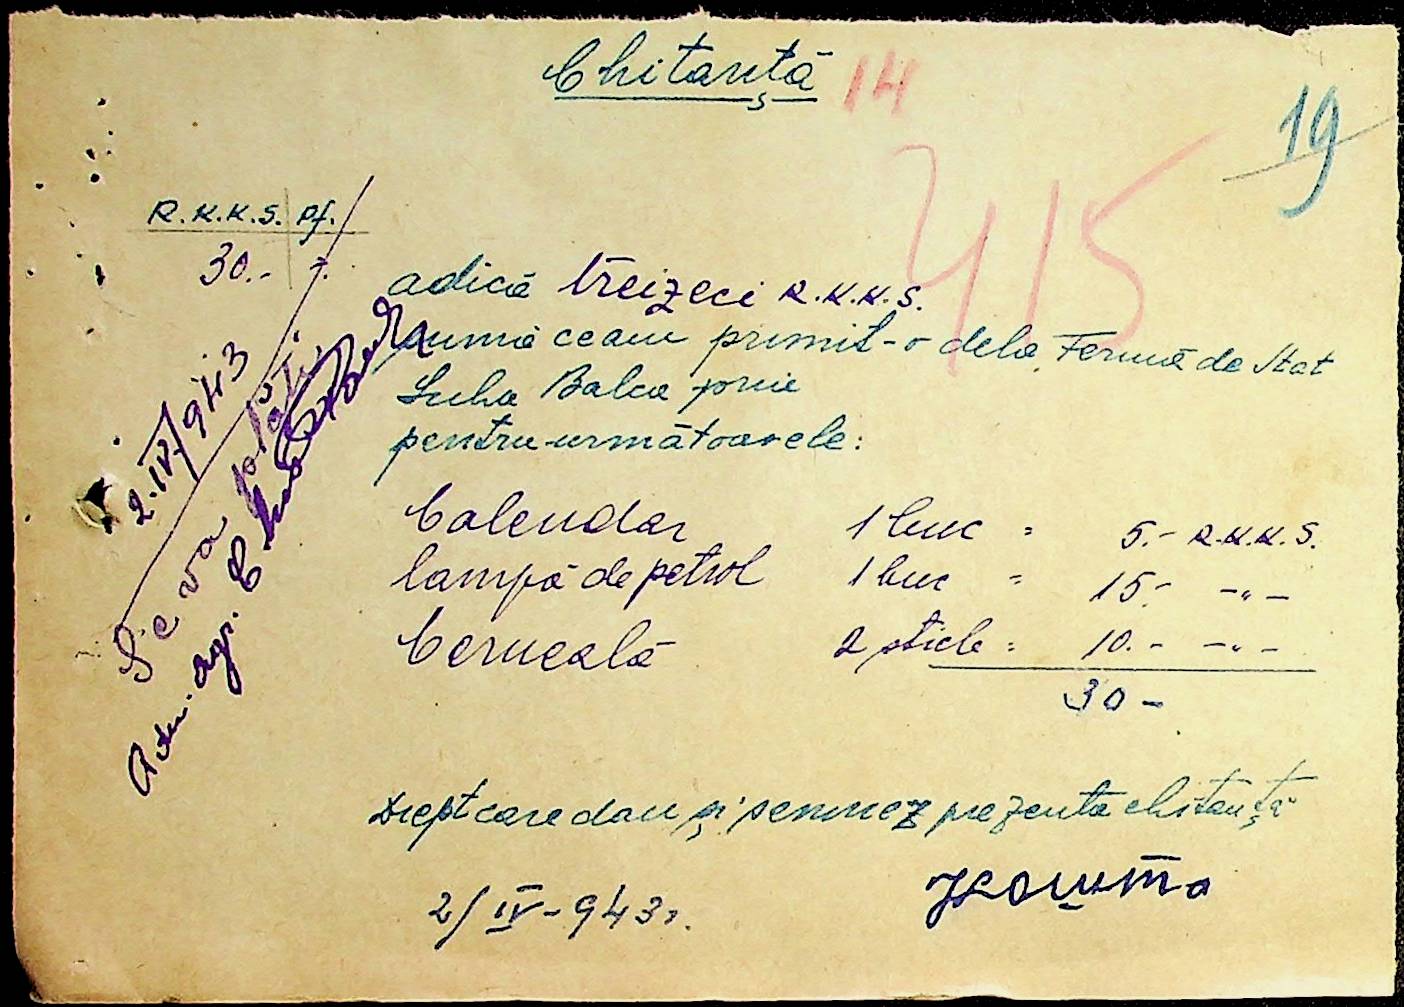 Chitanță
14
19
415
R.K.K.S. pf.
30.-
adică treizeci R.K.K.S.
suma ce am primit-o dela Ferma de Stat
Suha Balca
pentru următoarele:
Calendar 1 buc = 5.- R.K.K.S.
lampă de petrol 1 buc = 15.- -"-
Cerneală 2 sticle = 10.- -"-
30 -
Drept care dau și semnez prezenta chitanță
2/IV-943
2.IV/943
Se va plăti
Adm. agr.